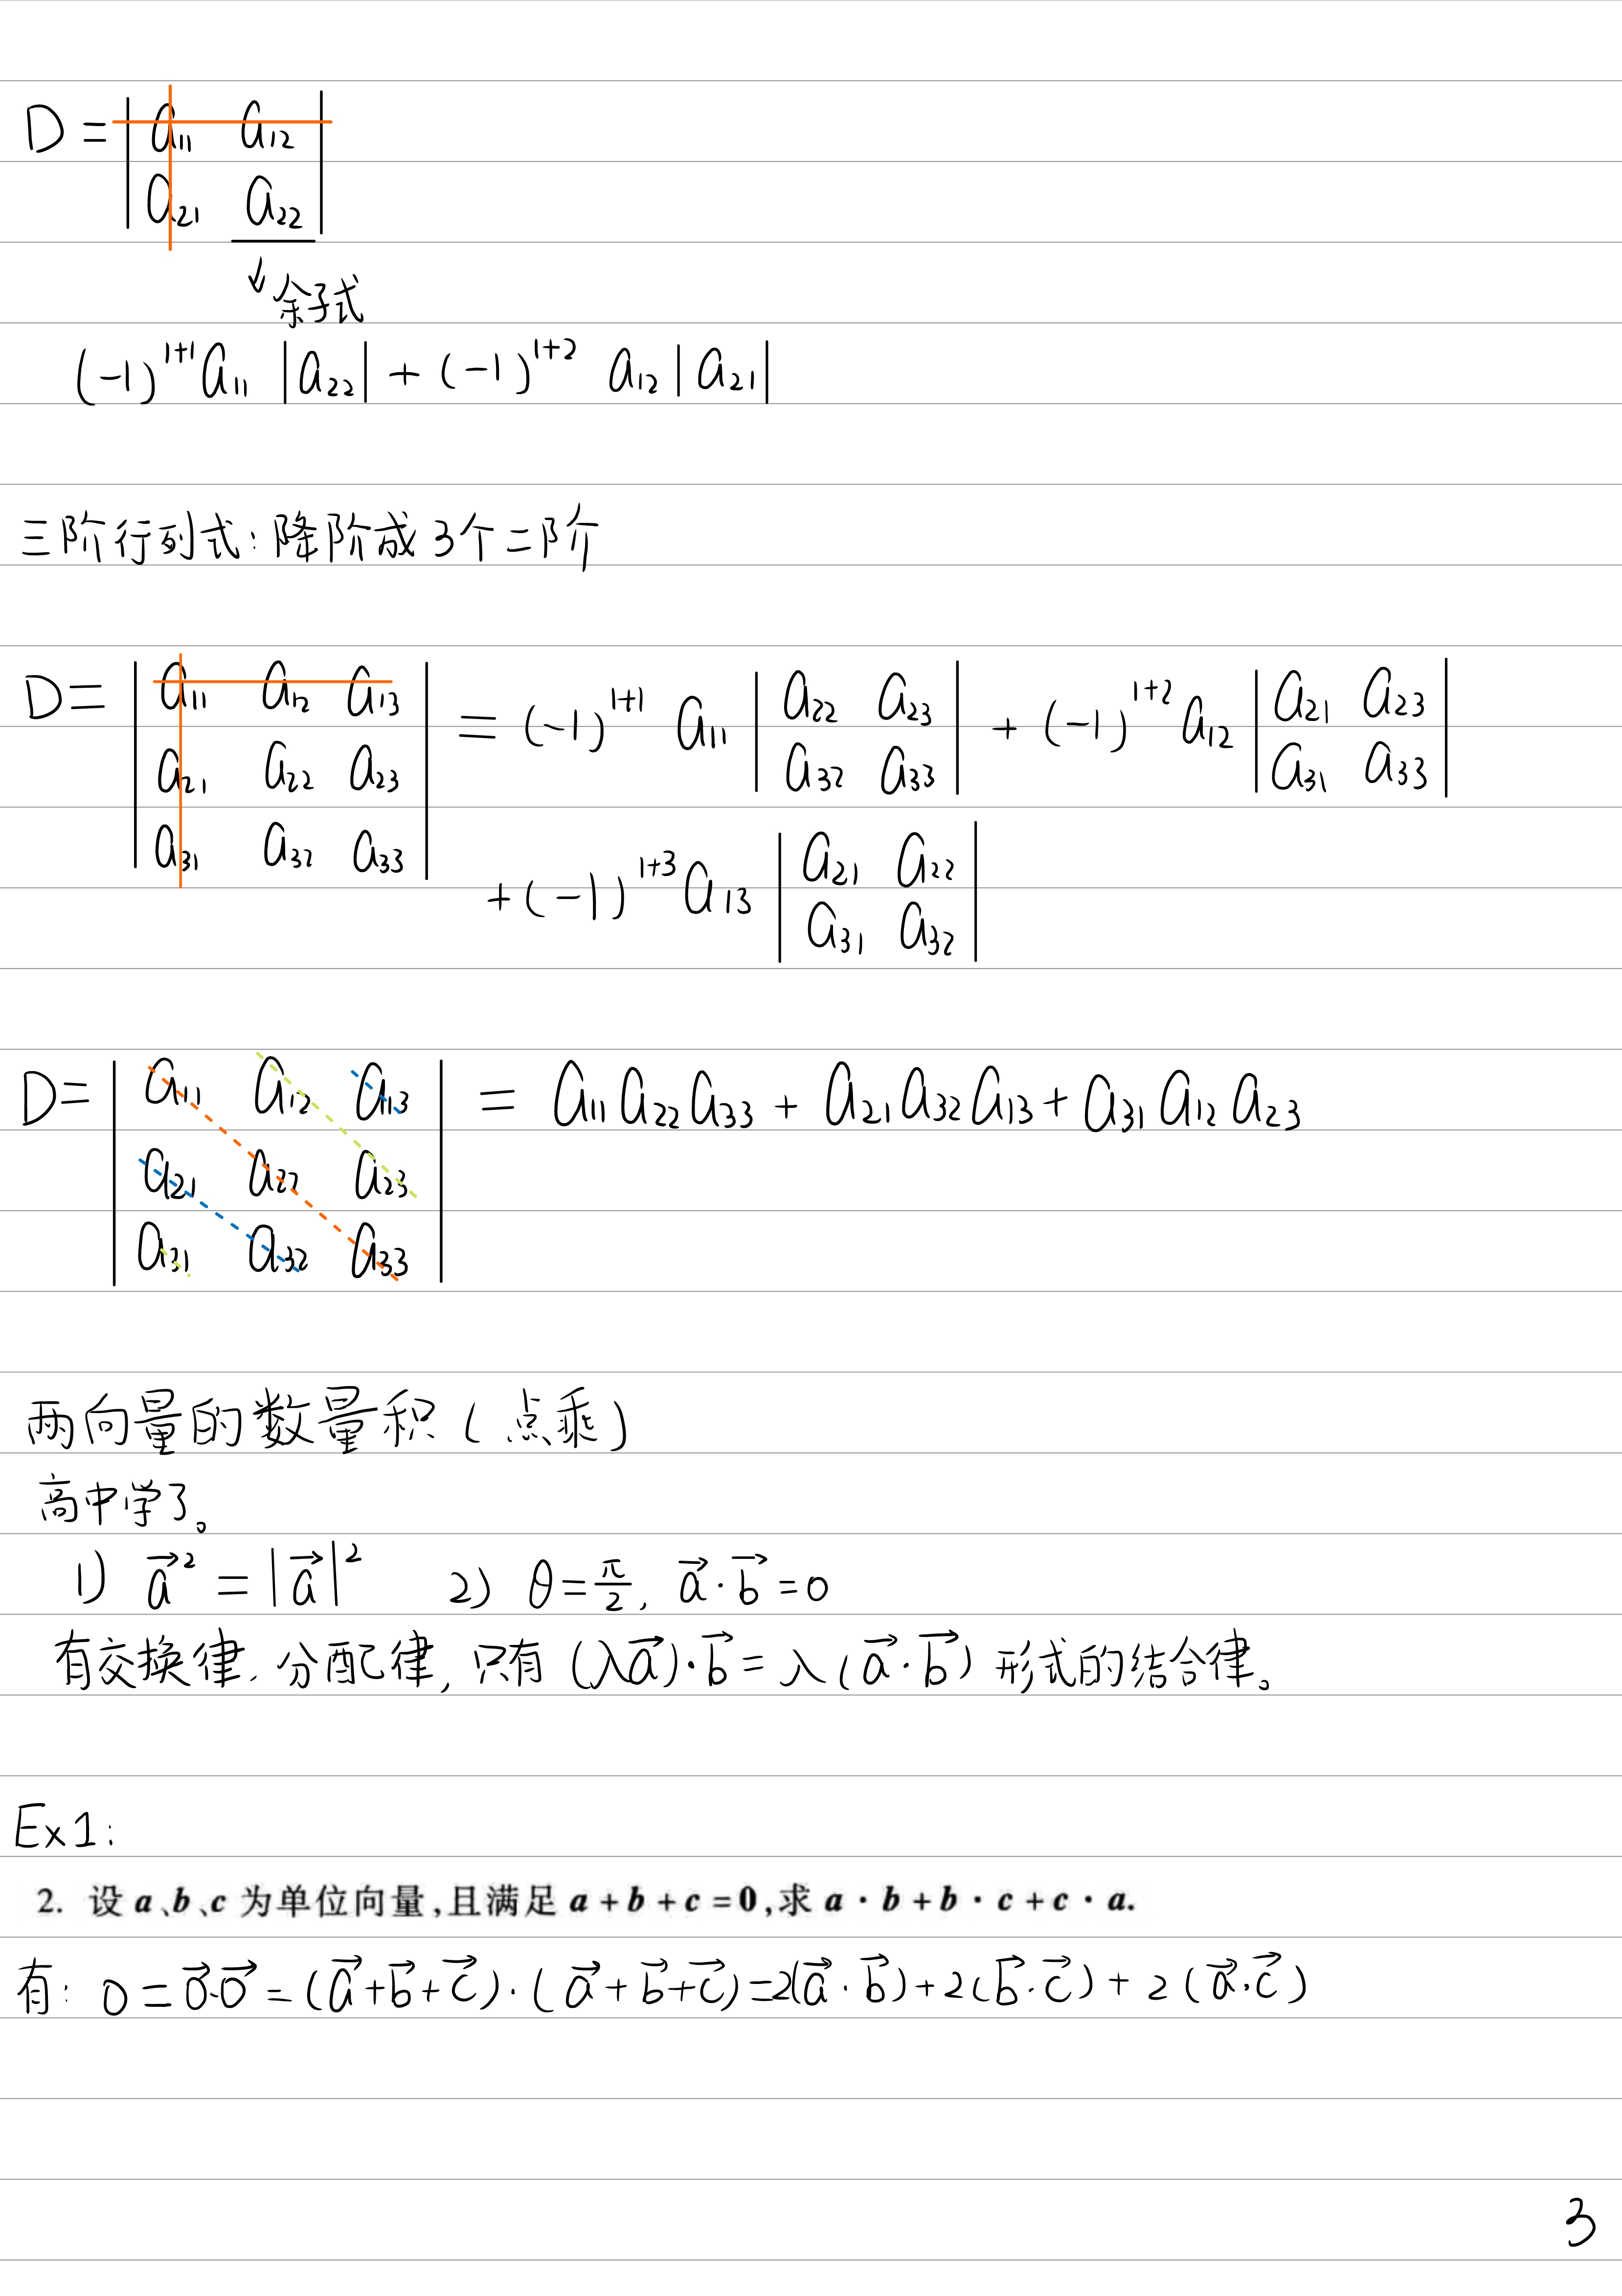 D = | a₁₁ a₁₂ |
| a₂₁ a₂₂ |
↓ 余子式
(-1)¹⁺¹ a₁₁ |a₂₂| + (-1)¹⁺² a₁₂ |a₂₁|
三阶行列式: 降阶成 3个二阶
D = | a₁₁ a₁₂ a₁₃ | = (-1)¹⁺¹ a₁₁ | a₂₂ a₂₃ | + (-1)¹⁺² a₁₂ | a₂₁ a₂₃ |
| a₂₁ a₂₂ a₂₃ | | a₃₂ a₃₃ | | a₃₁ a₃₃ |
| a₃₁ a₃₂ a₃₃ | + (-1)¹⁺³ a₁₃ | a₂₁ a₂₂ |
| a₃₁ a₃₂ |
D = | a₁₁ a₁₂ a₁₃ | = a₁₁a₂₂a₃₃ + a₂₁a₃₂a₁₃ + a₃₁a₁₂a₂₃
| a₂₁ a₂₂ a₂₃ |
| a₃₁ a₃₂ a₃₃ |
两向量的数量积 (点乘)
高中学了。
1) a⃗² = |a⃗|² 2) θ = π/2, a⃗·b⃗ = 0
有交换律、分配律, 只有 (λa⃗)·b⃗ = λ(a⃗·b⃗) 形式的结合律。
Ex1:
2. 设 a、b、c 为单位向量,且满足 a + b + c = 0,求 a · b + b · c + c · a.
有: 0 = 0⃗·0⃗ = (a⃗+b⃗+c⃗)·(a⃗+b⃗+c⃗) = 2(a⃗·b⃗) + 2(b⃗·c⃗) + 2(a⃗·c⃗)
3